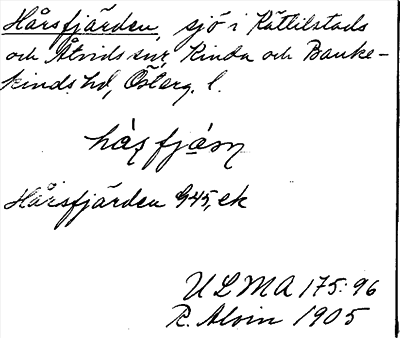 Hårsfjärden, sjö i Kättilstads
och Åtvids snr, Kinda och Banke-
kinds hd, Österg. l.
håṣfjạ́ṇ
Hårsfjärden G45, ek
ULMA 175:96
R. Alvin 1905